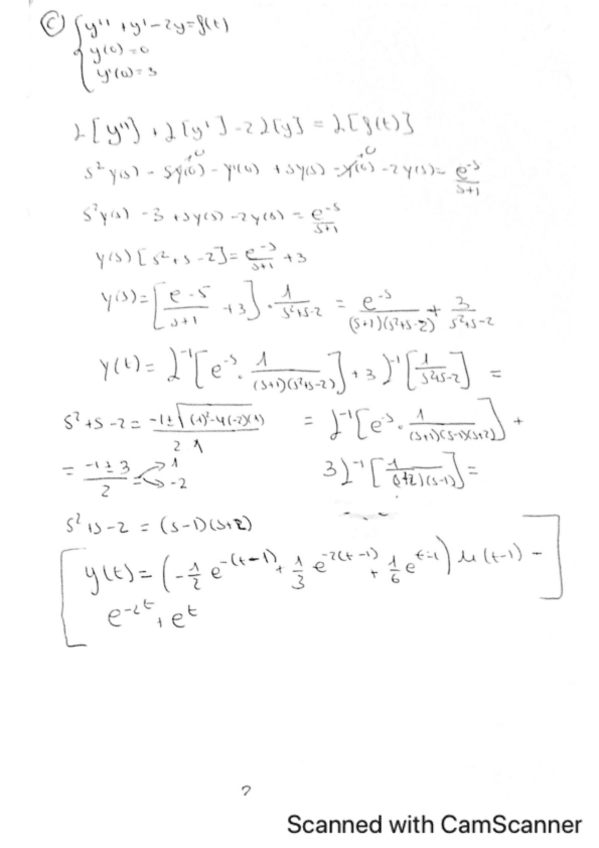 ⓒ { y'' + y' - 2y = f(t)
y(0) = 0
y'(0) = 3
L[y''] + L[y'] - 2L[y] = L[f(t)]
s² y(s) - s y(0) - y'(0) + s y(s) - y(0) - 2 y(s) = e^-s / (s+1)
s² y(s) - 3 + s y(s) - 2 y(s) = e^-s / (s+1)
y(s) [s² + s - 2] = e^-s / (s+1) + 3
y(s) = [ e-s / (s+1) + 3 ] · 1 / (s²+s-2) = e^-s / ((s+1)(s²+s-2)) + 3 / (s²+s-2)
y(t) = L^-1 [ e^-s · 1 / ((s+1)(s²+s-2)) ] + 3 L^-1 [ 1 / (s²+s-2) ] =
s² + s - 2 = (-1 ± √((1)²-4(-2)(1))) / (2·1) = L^-1 [ e^-s · 1 / ((s+1)(s-1)(s+2)) ] +
= (-1 ± 3) / 2 = 1, -2 3 L^-1 [ 1 / ((s+2)(s-1)) ] =
s² + s - 2 = (s-1)(s+2)
[ y(t) = ( -1/2 e^-(t-1) + 1/3 e^-2(t-1) + 1/6 e^t-1 ) u(t-1) -
e^-2t + e^t ]
2
Scanned with CamScanner